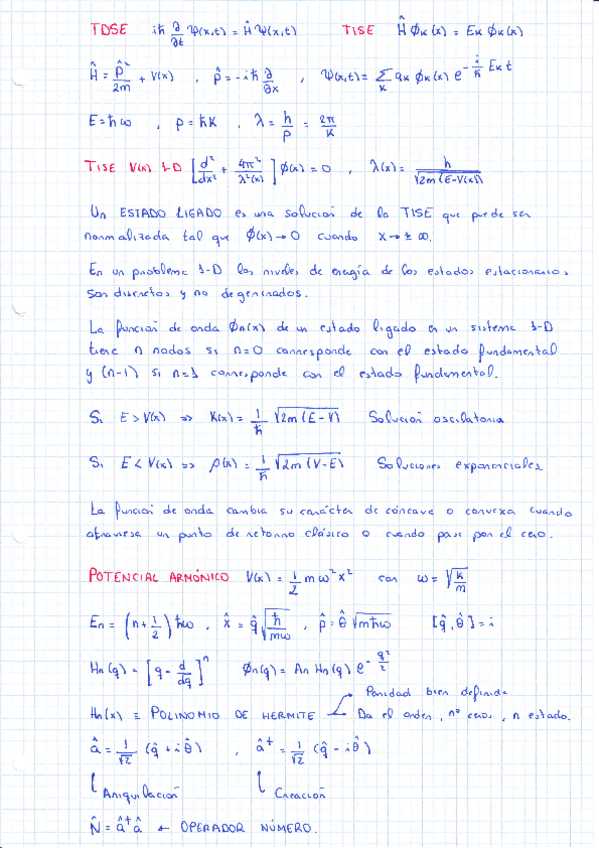 TDSE iħ ∂/∂t Ψ(x,t) = Ĥ Ψ(x,t) TISE Ĥ ϕκ(x) = Eκ ϕκ(x)
Ĥ = p̂²/2m + V(x) , p̂ = -iħ ∂/∂x , Ψ(x,t) = Σκ aκ ϕκ(x) e^(-i/ħ Eκ t)
E = ħω , p = ħK , λ = h/p = 2π/K
TISE V(x) 1-D [d²/dx² + 4π²/λ²(x)] ϕ(x) = 0 , λ(x) = h/√(2m(E-V(x)))
Un ESTADO LIGADO es una solución de la TISE que puede ser
normalizada tal que ϕ(x) → 0 cuando x → ± ∞.
En un problema 1-D los niveles de energía de los estados estacionarios
son discretos y no degenerados.
La función de onda ϕn(x) de un estado ligado en un sistema 1-D
tiene n nodos si n=0 corresponde con el estado fundamental
y (n-1) si n=1 corresponde con el estado fundamental.
Si E > V(x) => K(x) = 1/ħ √(2m(E-V)) Solución oscilatoria
Si E < V(x) => ρ(x) = 1/ħ √(2m(V-E)) Soluciones exponenciales
La función de onda cambia su carácter de cóncava o convexa cuando
atraviesa un punto de retorno clásico o cuando pasa por el cero.
POTENCIAL ARMÓNICO V(x) = 1/2 m ω² x² con ω = √(k/m)
En = (n + 1/2) ħω , x̂ = q̂ √(ħ/mω) , p̂ = θ̂ √(mħω) [q̂, θ̂] = i
Hn(q) = [q - d/dq]ⁿ ϕn(q) = An Hn(q) e^(-q²/2)
Paridad bien definida
Hn(x) ≡ POLINOMIO DE HERMITE Da el orden, nº ceros, n estado.
â = 1/√2 (q̂ + iθ̂) , â⁺ = 1/√2 (q̂ - iθ̂)
Aniquilación Creación
N̂ = â⁺â ← OPERADOR NÚMERO.